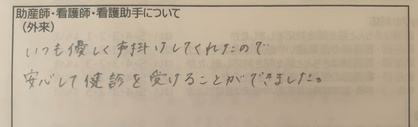 助産師・看護師・看護助手について
(外来)
いつも優しく声掛けしてくれたので
安心して健診を受けることができました。